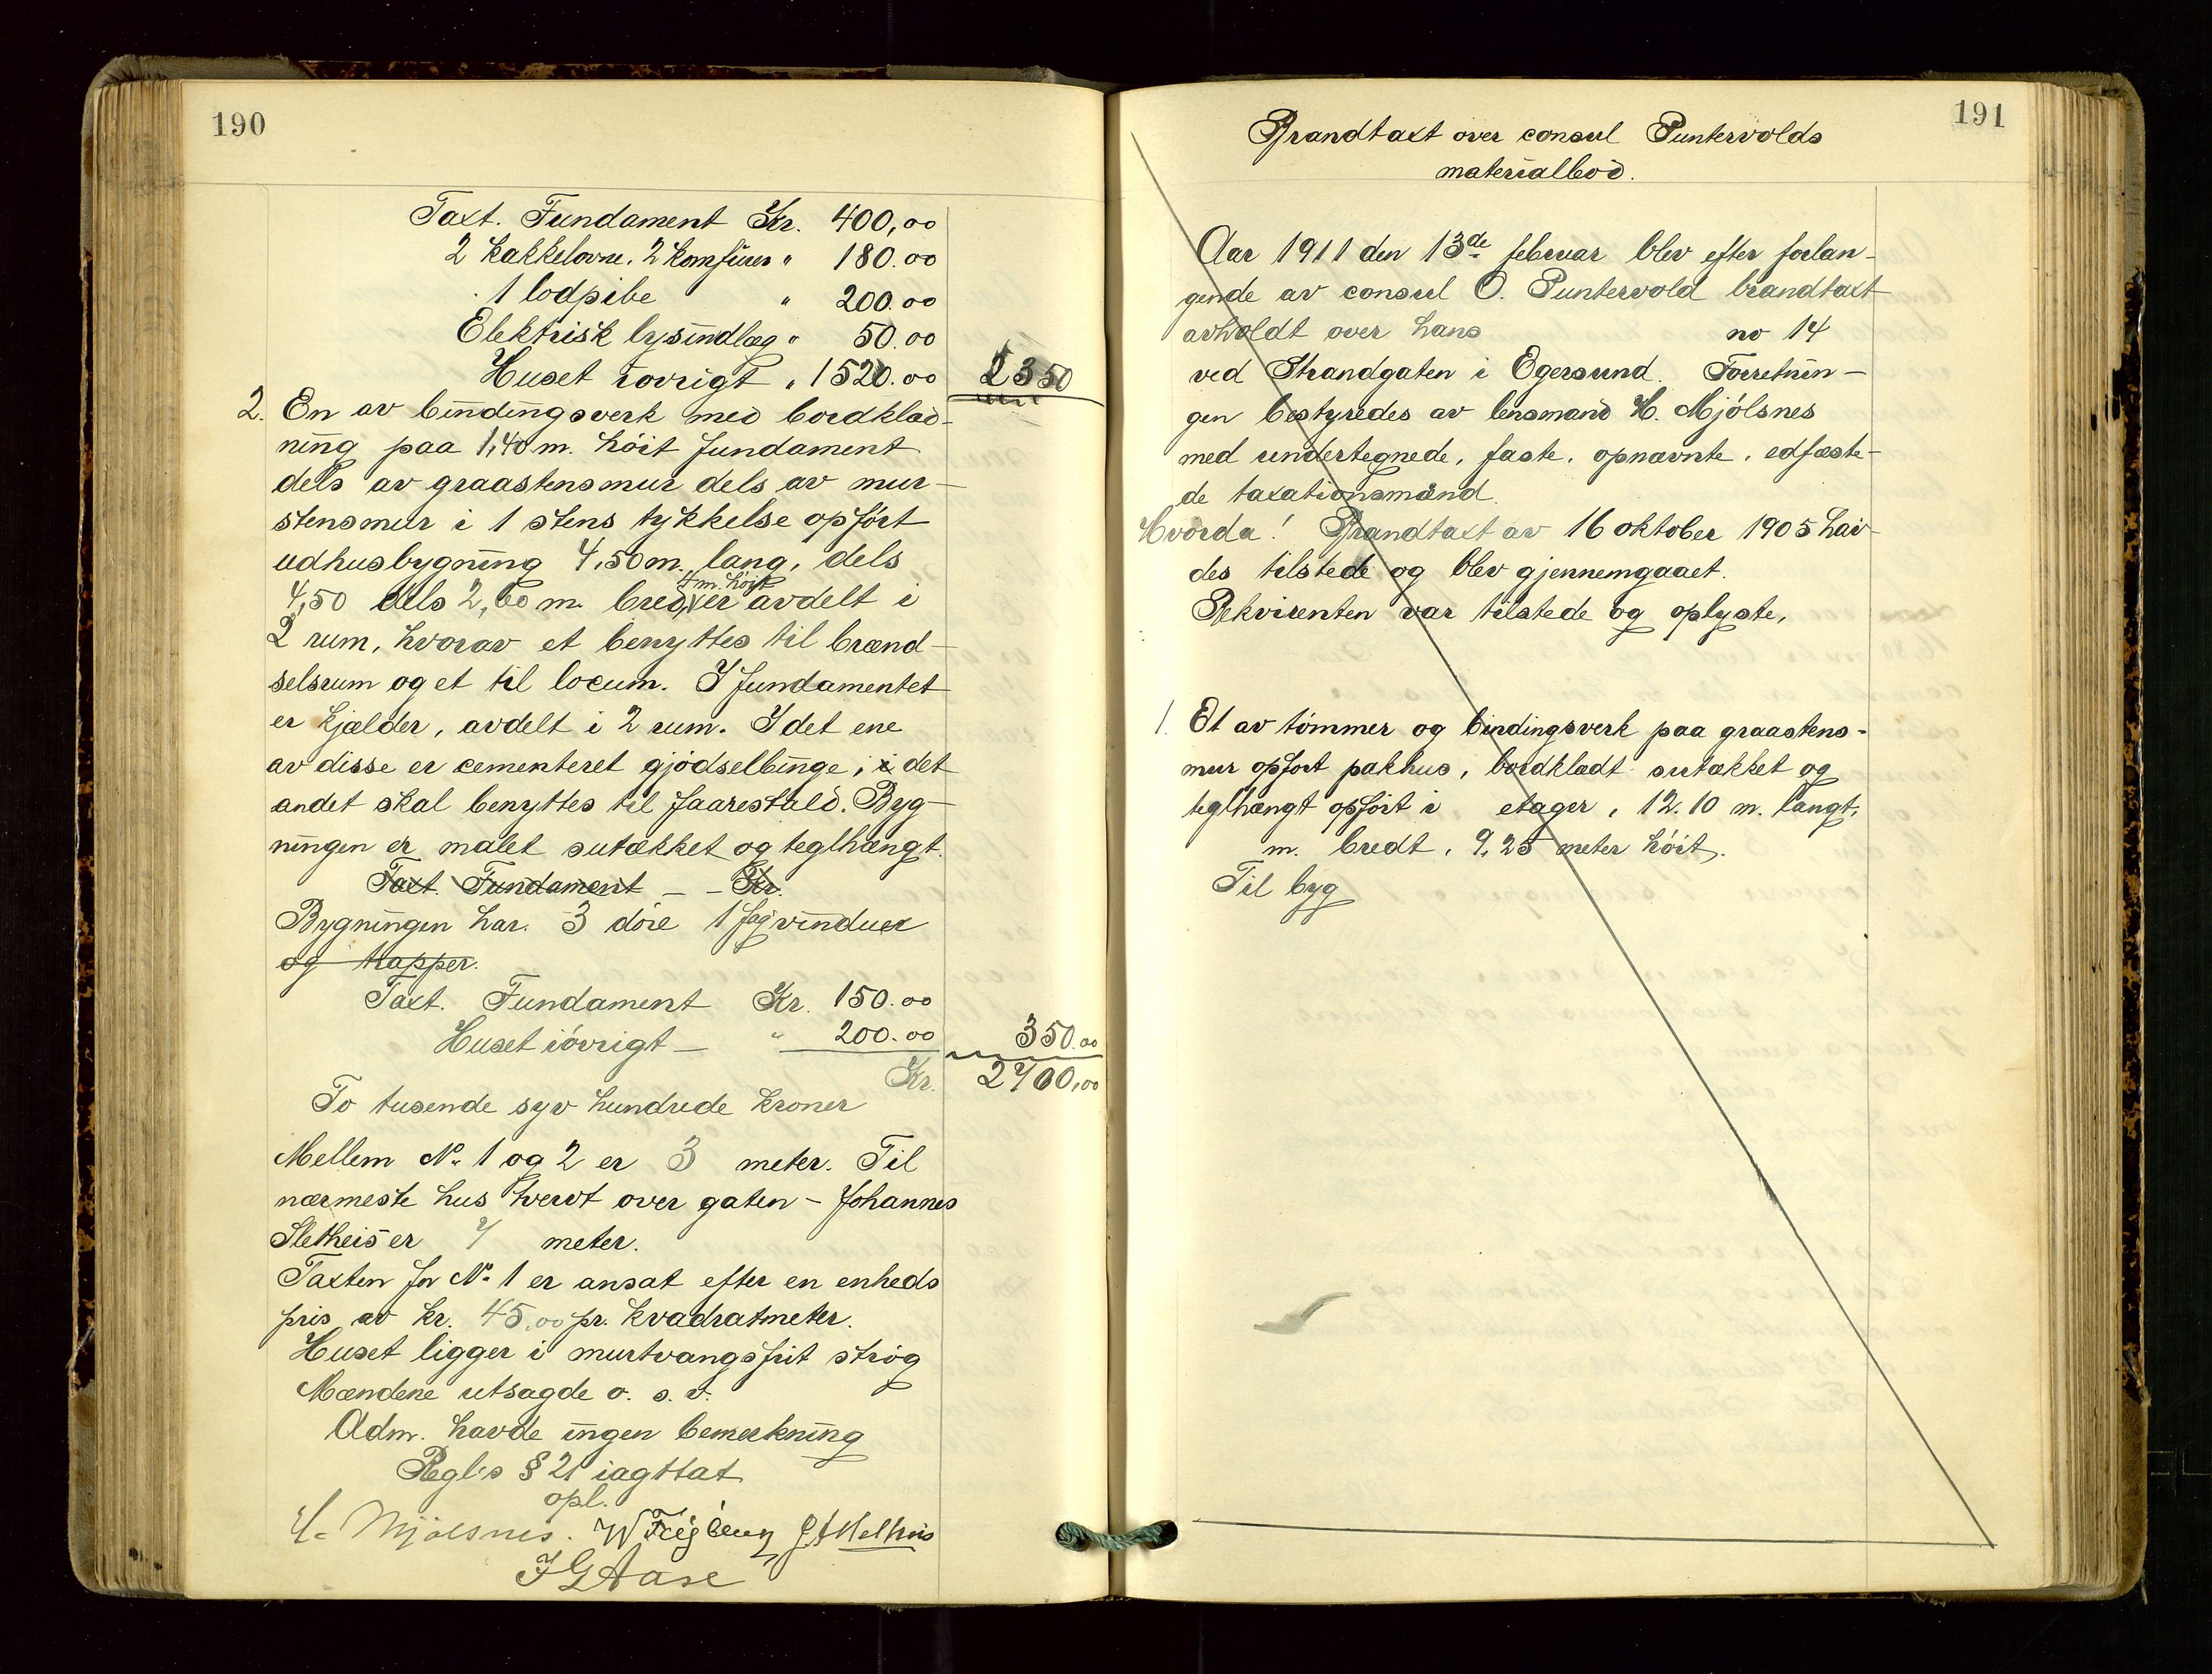 190
Taxt. Fundament Kr. 400,00
2 kakkelovne. 2 komfurer " 180.00
1 lodpibe " 200.00
Elektrisk lysindlæg " 50.00
Huset iøvrigt " 1520.00 2350
2. En av bindingsverk med bordklæd-
ning paa 1,40 m. høit fundament
dels av graastensmur dels av mur-
stensmur i 1 stens tykkelse opført
udhusbygning 4,50 m. lang, dels
4 m. høit
4,50 dels 2,60 m. bred, er avdelt i
2 rum, hvorav et benyttes til brænd-
selsrum og et til locum. I fundamentet
er kjælder, avdelt i 2 rum. I det ene
av disse er cementeret gjødselbinge, i det
andet skal benyttes til faarestald. Byg-
ningen er malet sutækket og teglhængt.
Taxt. Fundament - - Kr.
Bygningen har 3 døre 1 fag vinduer
og trapper.
Taxt. Fundament Kr. 150.00
Huset iøvrigt - " 200.00 350.00
Kr. 2700,00
To tusende syv hundrede kroner
Mellem No 1 og 2 er 3 meter. Til
nærmeste hus tvert over gaten - Johannes
Sletheis er 7 meter.
Taxten for No 1 er ansat efter en enheds
pris av kr. 45,00 pr. kvadratmeter.
Huset ligger i murtvangsfrit strøg
Mændene utsagde o. s. v.
Adm. havde ingen bemerkning
Regl.s § 21 iagttat
opl.
H. Mjølsnes. J A Melhus
J G Aase
191
Brandtaxt over consul Puntervolds
materialbod.
Aar 1911 den 13de februar blev efter forlan-
gende av consul O. Puntervold brandtaxt
avholdt over hans no 14
ved Strandgaten i Egersund. Forretnin-
gen bestyredes av lensmand H. Mjölsnes
med undertegnede, faste, opnævnte, edfæste-
de taxationsmænd.
Hvorda! Brandtaxt av 16 oktober 1905 hav-
des tilstede og blev gjennemgaaet.
Rekvirenten var tilstede og oplyste,
1. Et av tömmer og bindingsverk paa graastens-
mur opført pakhus, bordklædt sutækket og
teglhængt opført i etager, 12.10 m. langt,
m. bredt, 9,25 meter höit.
Til byg